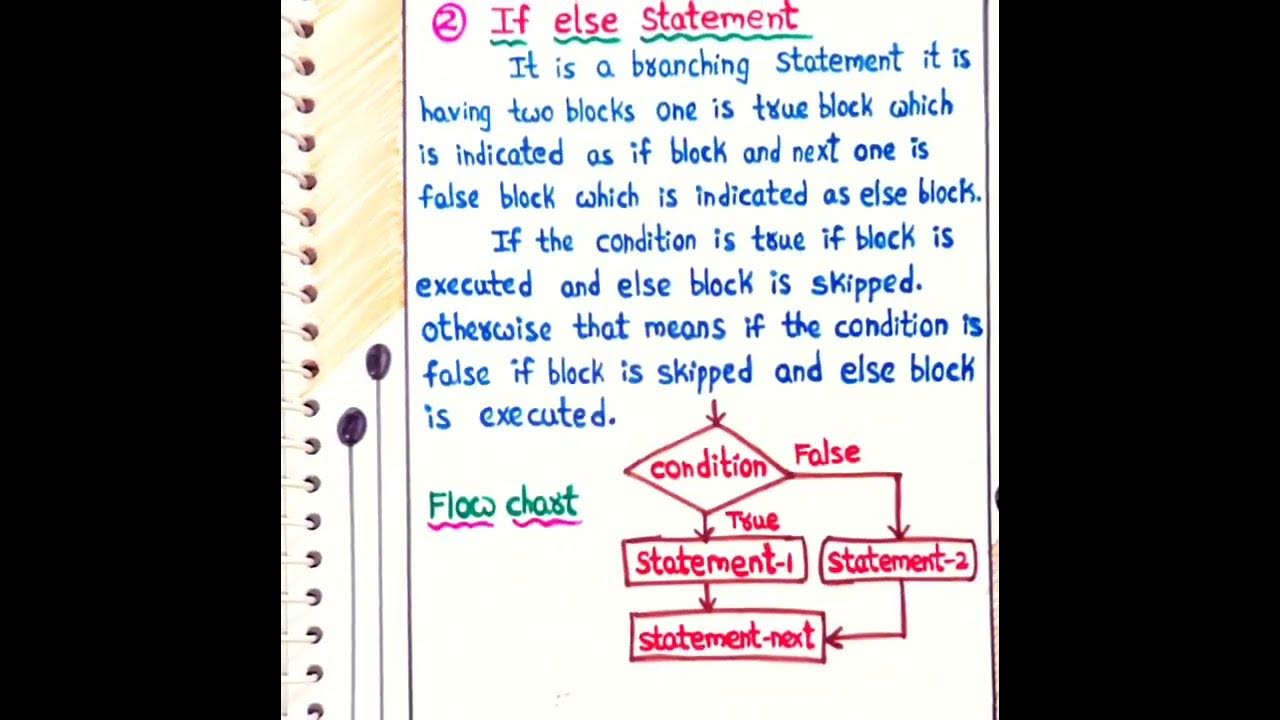 ② If else Statement
It is a branching Statement it is
having two blocks one is true block which
is indicated as if block and next one is
false block which is indicated as else block.
If the condition is true if block is
executed and else block is skipped.
otherwise that means if the condition is
false if block is skipped and else block
is executed.
condition
False
Flow chart
True
Statement-1
Statement-2
statement-next